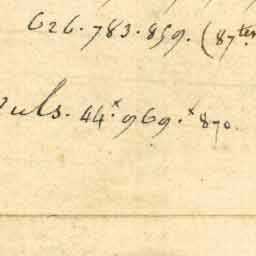 626.783.859. (87ter
uls. 44.x969.x870.